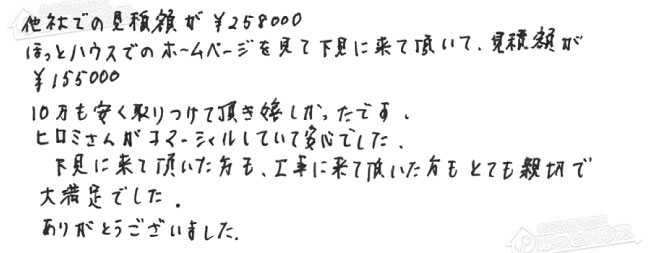 他社での見積額が ¥258000
ほっとハウスでのホームページを見て下見に来て頂いて、見積額が
¥155000
10万も安く取りつけて頂き嬉しかったです。
ヒロミさんがコマーシャルしていて安心でした、
下見に来て頂いた方も、工事に来て頂いた方もとても親切で
大満足でした。
ありがとうございました。